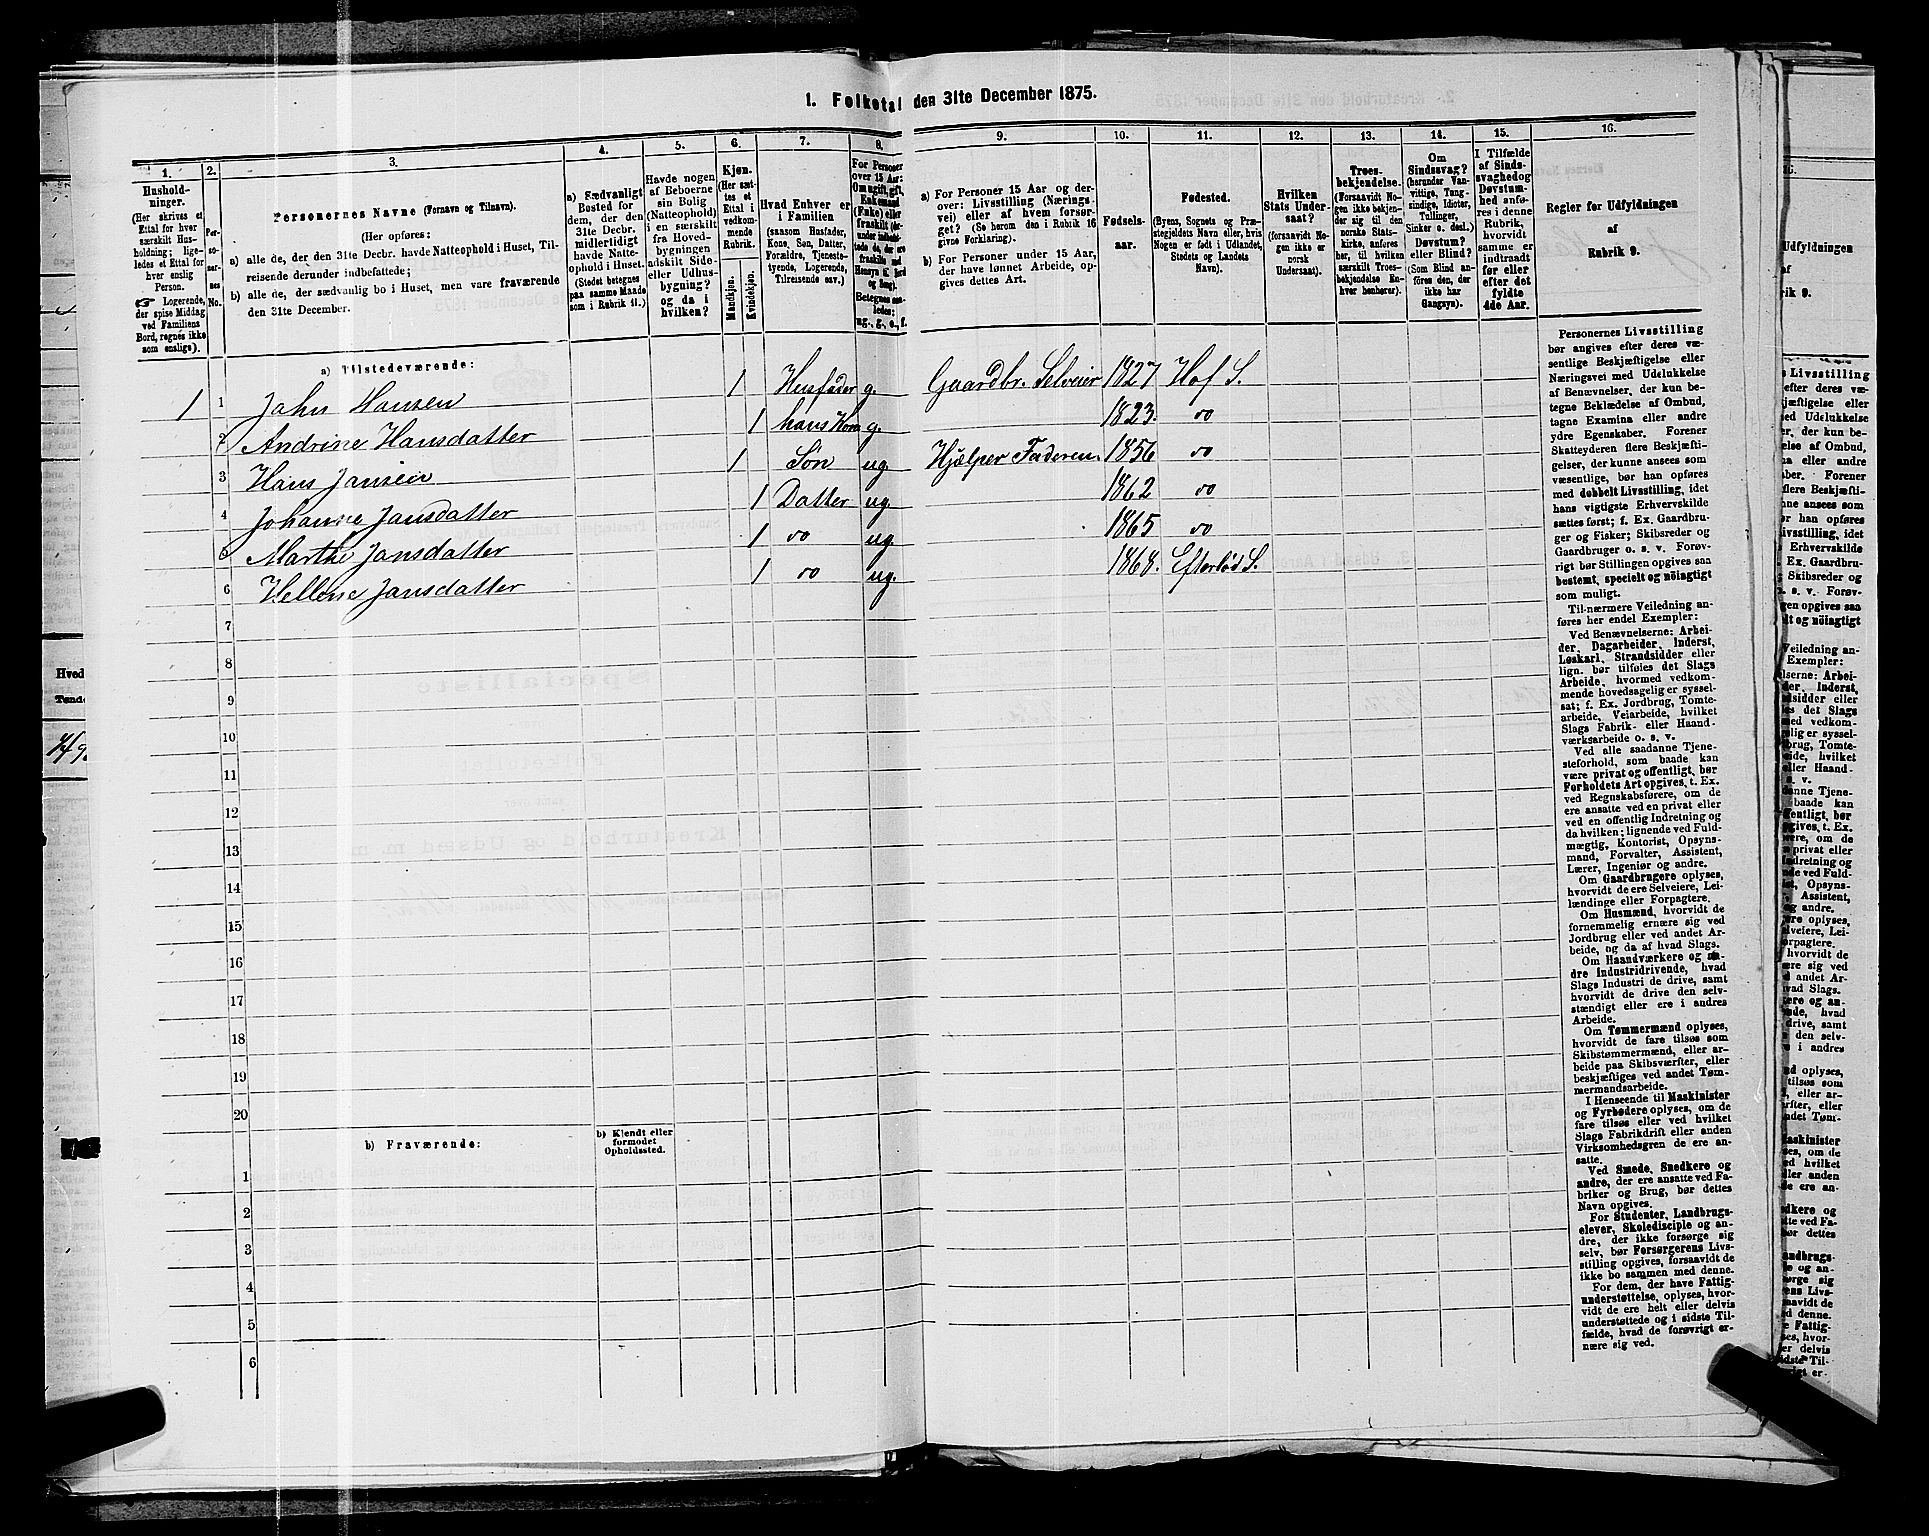 1. Folketal den 31te December 1875.
1.
2.
3.
4.
5.
6.
7.
8.
9.
10.
11.
12.
13.
14.
15.
16.
Husholdninger.
(Her skrives et
Ettal for hver
særskilt Husholdning;
ligeledes et Ettal
for hver enslig
Person.
Logerende,
der spise Middag
ved Familiens
Bord, regnes ikke
som enslige).
Personernes No.
Personernes Navne (Fornavn og Tilnavn).
(Her opføres:
a) alle de, der den 31te Decbr. havde Natteophold i Huset, Tilreisende derunder indbefattede;
b) alle de, der sædvanlig bo i Huset, men vare fraværende
den 31te December.
a) Sædvanligt
Bosted for
dem, der den
31te Decbr.
midlertidigt
havde Natteophold i Huset.
(Stedet betegnes
paa samme Maade
som i Rubrik 11.)
Havde nogen
af Beboerne
sin Bolig
(Natteophold)
i en særskilt
fra Hovedbygningen
adskilt Side-
eller Udhusbygning?
og da i
hvilken?
Kjøn.
(Her sættes et
Ettal i
vedkommende
Rubrik.
Mandkjøn.
Kvindekjøn.
Hvad Enhver er
i Familien
(saasom Husfader,
Kone, Søn, Datter,
Forældre, Tjenestetyende, Logerende,
Tilreisende osv.)
For Personer
over 15 Aar:
Om ugift, gift,
Enkemand
(Enke) eller
fraskilt
Betegnes saaledes:
ug., g., e., f.
a) For Personer 15 Aar og derover: Livsstilling (Næringsvei) eller af hvem forsørget? (Se herom den i Rubrik 16
givne Forklaring).
b) For Personer under 15 Aar,
der have lønnet Arbeide, opgives dettes Art.
Fødselsaar.
Fødested.
(Byens, Sognets og Præstegjeldets Navn eller, hvis
Nogen er født i Udlandet,
Stedets og Landets
Navn).
Hvilken
Stats Undersaat?
(forsaavidt Nogen ikke er
norsk
Undersaat).
Troesbekjendelse.
(Forsaavidt Nogen ikke bekjender sig til den
norske Statskirke, anføres
her, til hvilken
særskilt Troesbekjendelse Enhver henhører).
Om
Sindssvag?
(herunder Vanvittige, Tungsindige, Idioter,
Tullinger,
Sinker o. desl.)
Døvstum?
eller Blind?
(Som Blind anføres den, der
ikke har
Gangsyn).
I Tilfælde
af Sindssvaghed og
Døvstumhed anføres i denne
Rubrik,
hvorvidt
samme er
indtraadt
før eller
efter det
fyldte
4de Aar.
Regler for Udfyldningen
af
Rubrik 9.
a) Tilstedeværende:
1 1 John Hansen 1 Husfader g. Gaardbr. Selveier 1827 Hof S.
2 Andrine Hansdatter 1 hans Kone g. 1823. do
3 Hans Jansen 1 Søn ug. Hjælper Faderen. 1856 do
4 Johanne Jansdatter 1 Datter ug. 1862 do
5 Marthe Jansdatter 1 do ug. 1865 do
6 Hellene Jansdatter 1 do ug. 1868. Efterlød S.
7
8
9
10
11
12
13
14
15
16
17
18
19
20
b) Fraværende:
b) Kjendt eller
formodet
Opholdssted.
1
2
3
4
5
6
Personernes Livsstilling
bør angives efter deres væsentlige Beskjæftigelse eller
Næringsvei med Udelukkelse
af Benævnelser, der kun betegne Beklædelse af Ombud,
tagne Examina eller andre
ydre Egenskaber. Forener
Skatteyderen flere Beskjæftigelser, der kunne ansees som
væsentlige, bør han opføres
med dobbelt Livsstilling, idet
hans vigtigste Erhvervskilde
sættes først; f. Ex. Gaardbruger og Fisker; Skibsreder og
Gaardbruger o. s. v. Forøvrigt bør Stillingen opgives saa
bestemt, specielt og nöiagtigt
som muligt.
Til nærmere Veiledning anføres her endel Exempler:
Ved Benævnelserne: Arbeider, Dagarbeider, Inderst,
Løskarl, Strandsidder eller
lign. bør tilføies det Slags
Arbeide, hvormed vedkommende hovedsagelig er sysselsat; f. Ex. Jordbrug, Tomtearbeide, Veiarbeide, hvilket
Slags Fabrik- eller Haandværksarbeide o. s. v.
Ved alle saadanne Tjenesteforhold, som baade kan
være privat og offentligt, bør
Forholdets Art opgives, t. Ex.
ved Regnskabsførere, om de
ere ansatte ved en privat eller
ved en offentlig Indretning og
da hvilken; lignende ved Fuldmægtig, Kontorist, Opsynsmand, Forvalter, Assistent,
Lærer, Ingeniør og andre.
Om Gaardbrugere oplyses,
hvorvidt de ere Selveiere, Leilændinge eller Forpagtere.
Om Husmænd, hvorvidt de
fornemmelig ernære sig ved
Jordbrug eller ved andet Arbeide, og da af hvad Slags.
Om Haandværkere og andre Industridrivende, hvad
Slags Industri de drive, samt
hvorvidt de drive den selvstændigt eller ere i andres
Arbeide.
Om Tømmermænd oplyses,
hvorvidt de fare tilsøs som
Skibstømmermænd, eller arbeide paa Skibsværfter, eller
beskjæftiges ved andet Tømmermandsarbeide.
I Henseende til Maskinister
og Fyrbødere oplyses, om de
fare tilsøs eller ved hvilket
Slags Fabrikdrift eller anden
Virksomhedsgren de ere ansatte.
Ved Smede, Snedkere og
andre, der ere ansatte ved Fabriker og Brug, bør dettes
Navn opgives.
For Studenter, Landbrugselever, Skoledisciple og andre, der ikke forsørge sig
selv, bør Forsørgerens Livsstilling opgives, forsaavidt de
ikke bo sammen med denne.
For dem, der have Fattigunderstøttelse, oplyses, hvorvidt de ere helt eller delvis
understøttede og i sidste Tilfælde, hvad de forøvrigt ernære sig ved.